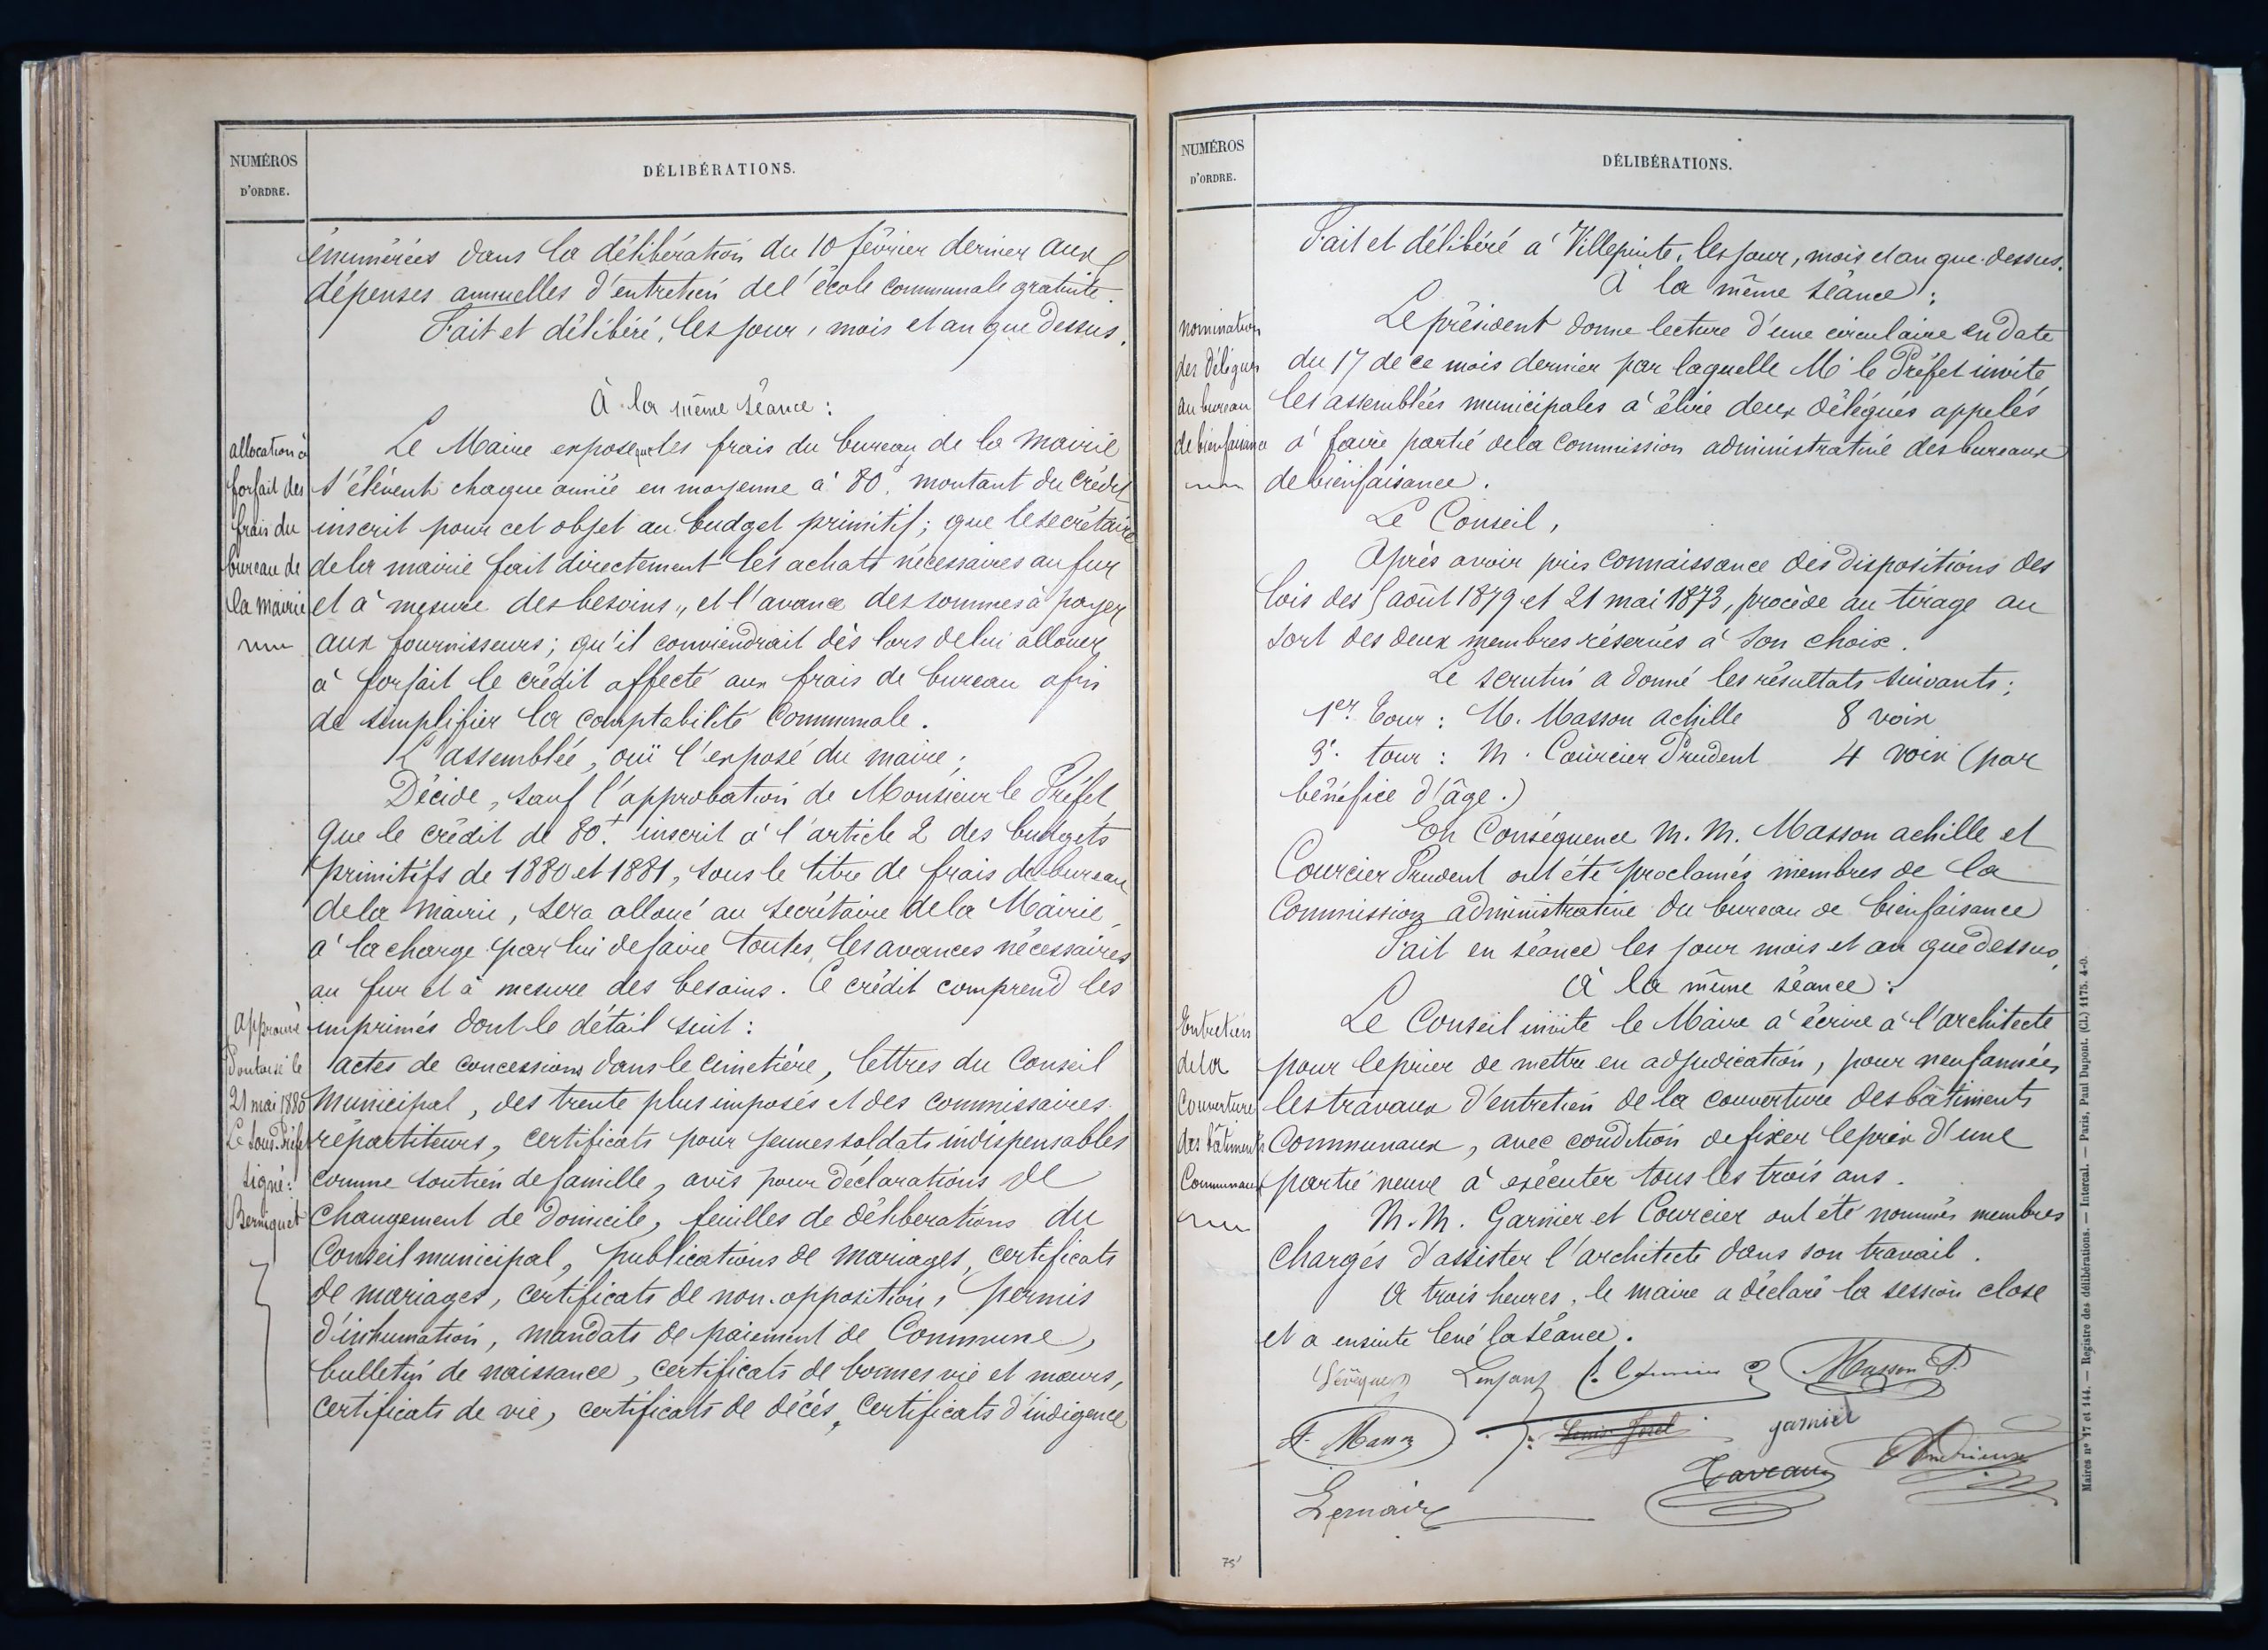 NUMÉROS
D'ORDRE.
DÉLIBÉRATIONS.
énumérées dans la délibération du 10 février dernier aux
dépenses annuelles d'entretien de l'école communale gratuite.
Fait et délibéré, les jour, mois et an que dessus.
À la même séance :
allocation à
forfait des
frais du
bureau de
la mairie
Le Maire expose que les frais du bureau de la mairie
s'élèvent chaque année en moyenne à 80f. montant du crédit
inscrit pour cet objet au budget primitif ; que le secrétaire
de la mairie fait directement les achats nécessaires au fur
et à mesure des besoins, et l'avance des sommes à payer
aux fournisseurs ; qu'il conviendrait dès lors de lui allouer
à forfait le crédit affecté aux frais de bureau afin
de simplifier la comptabilité communale.
L'assemblée, ouï l'exposé du maire ;
Décide, sauf l'approbation de Monsieur le Préfet,
que le crédit de 80f. inscrit à l'article 2 des budgets
primitifs de 1880 et 1881, sous le titre de frais de bureau
de la mairie, sera alloué au secrétaire de la Mairie
à la charge par lui de faire toutes les avances nécessaires
au fur et à mesure des besoins. Ce crédit comprend les
imprimés dont le détail suit :
approuvé
Pontoise le
21 mai 1880
Le Sous-Préfet
signé :
Berniquet
actes de concessions dans le cimetière, lettres du Conseil
Municipal, des trente plus imposés et des commissaires
répartiteurs, certificats pour jeunes soldats indispensables
comme soutien de famille, avis pour déclarations de
changement de domicile, feuilles de délibérations du
Conseil municipal, publications de mariages, certificats
de mariages, certificats de non-opposition, permis
d'inhumation, mandats de paiement de Commune,
bulletin de naissance, certificats de bonnes vie et mœurs,
certificats de vie, certificats de décès, certificats d'indigence
NUMÉROS
D'ORDRE.
DÉLIBÉRATIONS.
Fait et délibéré à Villepinte, les jour, mois et an que dessus.
À la même séance :
nomination
des délégués
au bureau
de bienfaisance
Le président donne lecture d'une circulaire en date
du 17 de ce mois dernier par laquelle M. le Préfet invite
les assemblées municipales à élire deux délégués appelés
à faire partie de la commission administrative des bureaux
de bienfaisance.
Le Conseil,
Après avoir pris connaissance des dispositions des
lois des 5 août 1879 et 21 mai 1873, procède au tirage au
sort des deux membres réservés à son choix.
Le scrutin a donné les résultats suivants ;
1er. tour : M. Masson achille 8 voix
3e. tour : M. Courcier Prudent 4 voix (par
bénéfice d'âge.)
En conséquence M. M. Masson achille et
Courcier Prudent ont été proclamés membres de la
Commission administrative du bureau de bienfaisance
Fait en séance les jour mois et an que dessus,
À la même séance :
Entretien
de la
Couverture
des bâtiments
Communaux
Le Conseil invite le Maire à écrire à l'architecte
pour le prier de mettre en adjudication, pour neuf années,
les travaux d'entretien de la couverture des bâtiments
communaux, avec condition de fixer le prix d'une
partie neuve à exécuter tous les trois ans.
M. M. Garnier et Courcier ont été nommés membres
chargés d'assister l'architecte dans son travail.
À trois heures, le maire a déclaré la session close
et a ensuite levé la séance.
Masson P.
Louis Josel
garnier
Andrieux
Lemaire
75
Maires nos 17 et 144. — Registre des délibérations. — Intercal. — Paris, Paul Dupont. (Cl.) 1175. 4-0.